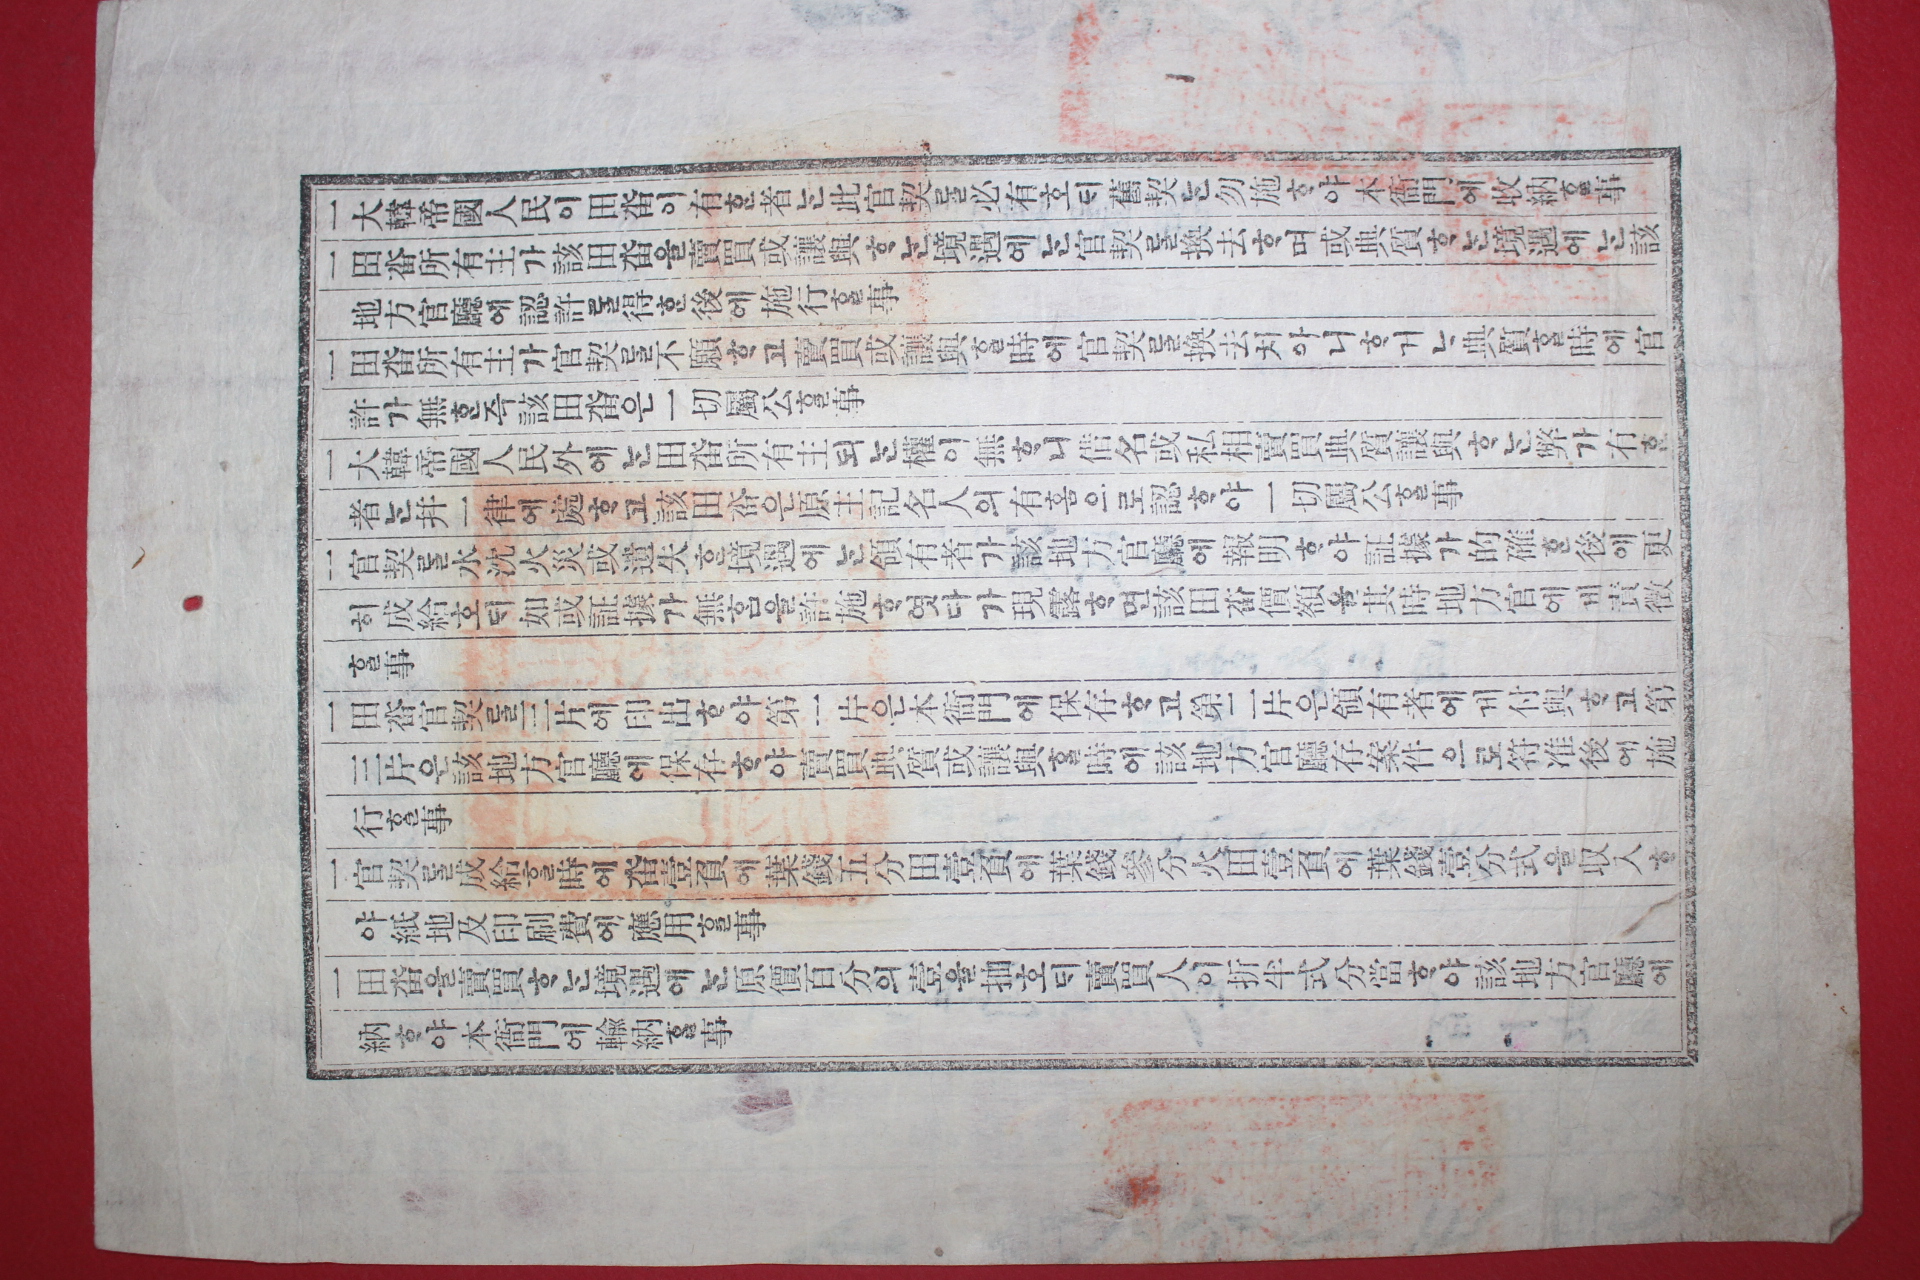 一大韓帝國人民이田畓이有ᄒᆞᆫ者ᄂᆞᆫ此官契ᄅᆞᆯ必有호ᄃᆡ舊契ᄂᆞᆫ勿施ᄒᆞ야本衙門에收納ᄒᆞᆯ事
一田畓所有主가該田畓을賣買或讓與ᄒᆞᄂᆞᆫ境遇에ᄂᆞᆫ官契ᄅᆞᆯ換去ᄒᆞ며或典質ᄒᆞᄂᆞᆫ境遇에ᄂᆞᆫ該
地方官廳에認許ᄅᆞᆯ得ᄒᆞᆫ後에施行ᄒᆞᆯ事
一田畓所有主가官契ᄅᆞᆯ不願ᄒᆞ고賣買或讓與ᄒᆞᆯ時에官契ᄅᆞᆯ換去치아니ᄒᆞ거ᄂᆞ典質ᄒᆞᆯ時에官
許가無ᄒᆞᆫ즉該田畓은一切屬公ᄒᆞᆯ事
一大韓帝國人民外에ᄂᆞᆫ田畓所有主되ᄂᆞᆫ權이無ᄒᆞ니借名或私相賣買典質讓與ᄒᆞᄂᆞᆫ弊가有ᄒᆞᆫ
者ᄂᆞᆫ幷一律에處ᄒᆞ고該田畓은原主記名人의有홈으로認ᄒᆞ야一切屬公ᄒᆞᆯ事
一官契ᄅᆞᆯ水沈火災或遺失ᄒᆞᆫ境遇에ᄂᆞᆫ領有者가該地方官廳에報明ᄒᆞ야証據가的確ᄒᆞᆫ後에更
히成給호ᄃᆡ如或証據가無홈을許施ᄒᆞ엿다가現露ᄒᆞ면該田畓價額을其時地方官에게責徵
ᄒᆞᆯ事
一田畓官契ᄅᆞᆯ三片에印出ᄒᆞ야第一片은本衙門에保存ᄒᆞ고第二片은領有者에게付與ᄒᆞ고第
三片은該地方官廳에保存ᄒᆞ야賣買典質或讓與ᄒᆞᆯ時에該地方官廳存案件으로符准後에施
行ᄒᆞᆯ事
一官契ᄅᆞᆯ成給ᄒᆞᆯ時에畓壹負에葉錢五分田壹負에葉錢參分火田壹負에葉錢壹分式을収入ᄒᆞ
야紙地及印刷費에應用ᄒᆞᆯ事
一田畓을賣買ᄒᆞᄂᆞᆫ境遇에ᄂᆞᆫ原價百分의壹을抽호ᄃᆡ賣買人이折半式分當ᄒᆞ야該地方官廳에
納ᄒᆞ야本衙門에輸納ᄒᆞᆯ事